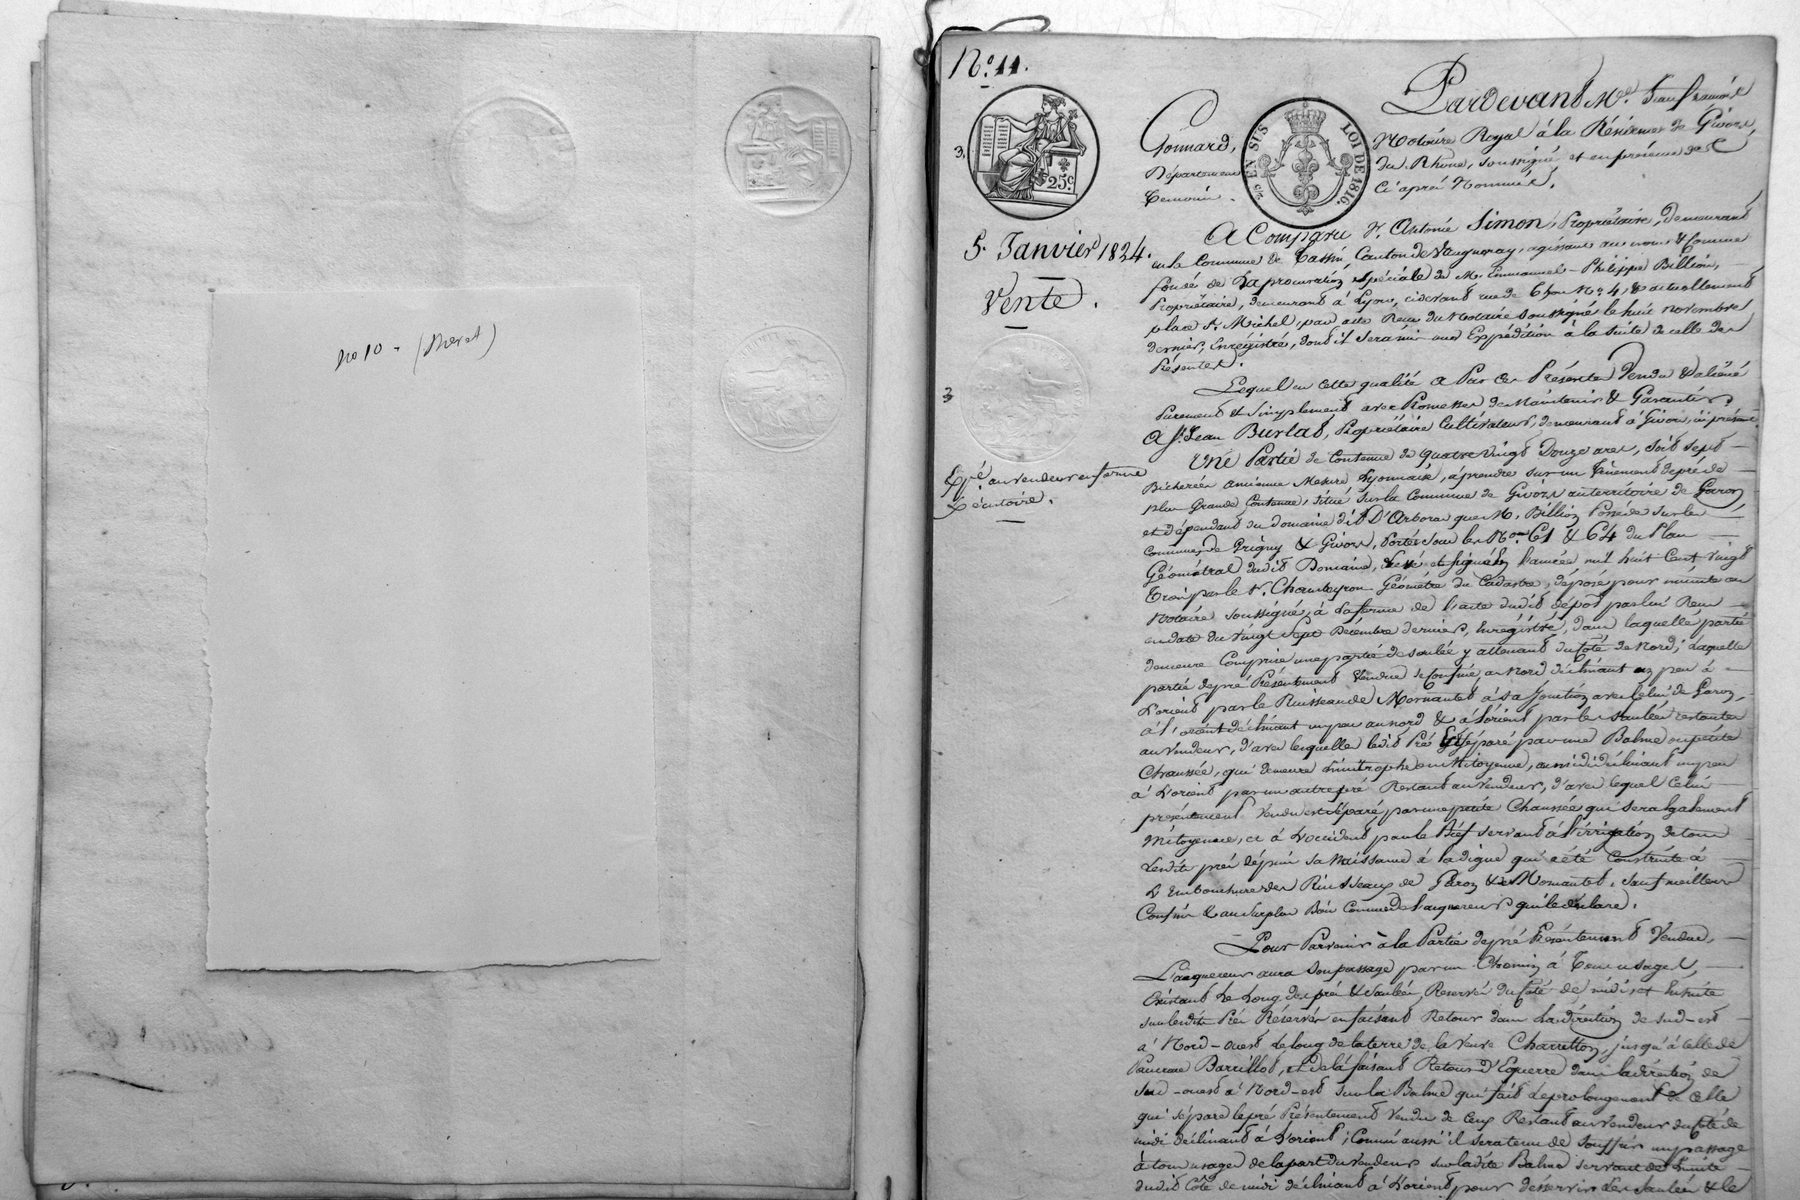 no 10 - (Moret)
No. 11.
Pardevant Me. Jean François
Gonnard, Notaire Royal à la Résidence de Givors,
Département du Rhône, soussigné et en présence des
témoins ci après nommés.
EN SUS
LOI DE 1816.
25c
3.
5. Janvier 1824.
Vente.
3
Expé. au vendeur en forme
Exécutoire.
A Comparu Sr. Antoine Simon, Propriétaire, demeurant
en la Commune de Tassin, Canton de Vaugneray, agissant au nom & Comme
fondé de la procuration Spéciale de M. Emmanuel-Philippe Billion,
Propriétaire, demeurant à Lyon, cidevant rue de No. 4, & actuellement
place St. Michel, par acte Reçu du Notaire soussigné le huit novembre
dernier, Enrégistré, dont il sera mis une Expédition à la suite de celle des
Présentes.
Lequel en cette qualité a Par ces Présentes Vendu & aliéné
Purement & Simplement avec Promesse de Maintenir & Garantir,
A Sr. Jean Burlat, Propriétaire Cultivateur, demeurant à Givors, ici présent
Une Partie de Contenue de quatre vingt Douze ares, soit sept
Bicherées ancienne Mesure Lyonnaise, à prendre sur un Tènement de pré de
plus Grande Contenue, situé sur la Commune de Givors au territoire de Garon
et dépendant du domaine dit D'Arboras que M. Billion Possède sur les
Communes de Grigny & Givors, Portés sous les Nos. 61 & 64 du Plan
Géométral dudit Domaine, dressé et signé en l'année mil huit Cent vingt
Trois par le Sr. Chanteyron Géomètre du Cadastre, déposé pour minute au
Notaire soussigné, à la forme de l'acte dudit dépôt par lui Reçu
en date du vingt Sept Décembre dernier, Enrégistré, dans laquelle partie
demeure Comprise une partie de saulée y attenant du Côté de Nord; Laquelle
partie de pré Présentement Vendue se Confine, au Nord déclinant un peu à
L'orient par le Ruisseau de Mornantet à sa Jonction avec Celui de Garon,
à l'orient déclinant un peu au nord & à l'orient par les saulées restantes
au vendeur, d'avec lesquelles ledit Pré est séparé par une Balme ou petite
Chaussée, qui demeure limitrophe ou Mitoyenne, au midi déclinant un peu
à L'orient par un autre pré Restant au vendeur, d'avec lequel Celui
présentement Vendu est séparé par une petite Chaussée qui sera également
Mitoyenne, et à L'occident par le Bief servant à l'irrigation de tous
Lesdits prés depuis sa Naissance à la digue qui a été Construite à
L'Embouchure des Ruisseaux de Garon & de Mornantet, sauf meilleurs
Confins & au surplus Bien Connus de l'acquéreur qui le déclare.
Pour Parvenir à la Partie de pré Présentement Vendue,
L'acquéreur aura son passage par un Chemin à Tous usages,
Existant Le Long des prés & Saulées Réservés du Côté de midi, et Ensuite
sur lesdits Prés Réservés en faisant Retour dans la direction de sud-est
à Nord-ouest Le long de la terre de la Veuve Charretton, jusqu'à celle de
Pancrace Barrillot, et de là faisant Retour D'Equerre dans la direction de
sud-ouest à Nord-est sur la Balme qui fait Le prolongement de celle
qui sépare le pré Présentement Vendu de Ceux Restant au vendeur du Côté de
midi déclinant à L'orient; Comme aussi il sera tenu de souffrir un passage
à tous usages de la part du vendeur sur ladite Balme servant de limite
dudit Côté de midi déclinant à L'orient pour desservir Les saulées & le